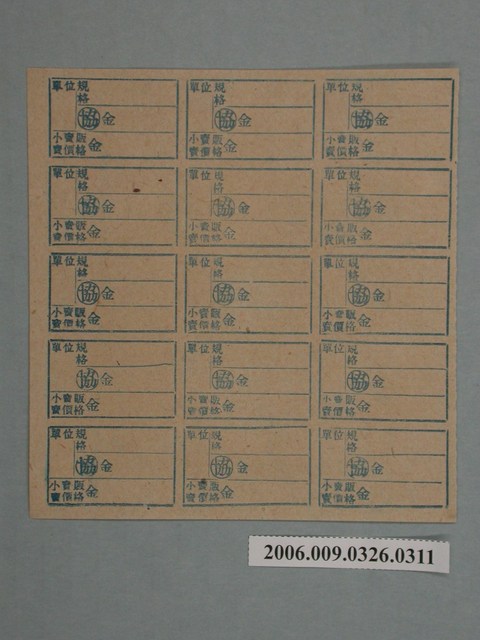 單位規
格
協金
小賣販
賣價格金
單位規
格
協金
小賣販
賣價格金
單位規
格
協金
小賣販
賣價格金
單位規
格
協金
小賣販
賣價格金
單位規
格
協金
小賣販
賣價格金
單位規
格
協金
小賣販
賣價格金
單位規
格
協金
小賣販
賣價格金
單位規
格
協金
小賣販
賣價格金
單位規
格
協金
小賣販
賣價格金
單位規
格
協金
小賣販
賣價格金
單位規
格
協金
小賣販
賣價格金
單位規
格
協金
小賣販
賣價格金
單位規
格
協金
小賣販
賣價格金
單位規
格
協金
小賣販
賣價格金
單位規
格
協金
小賣販
賣價格金
2006.009.0326.0311